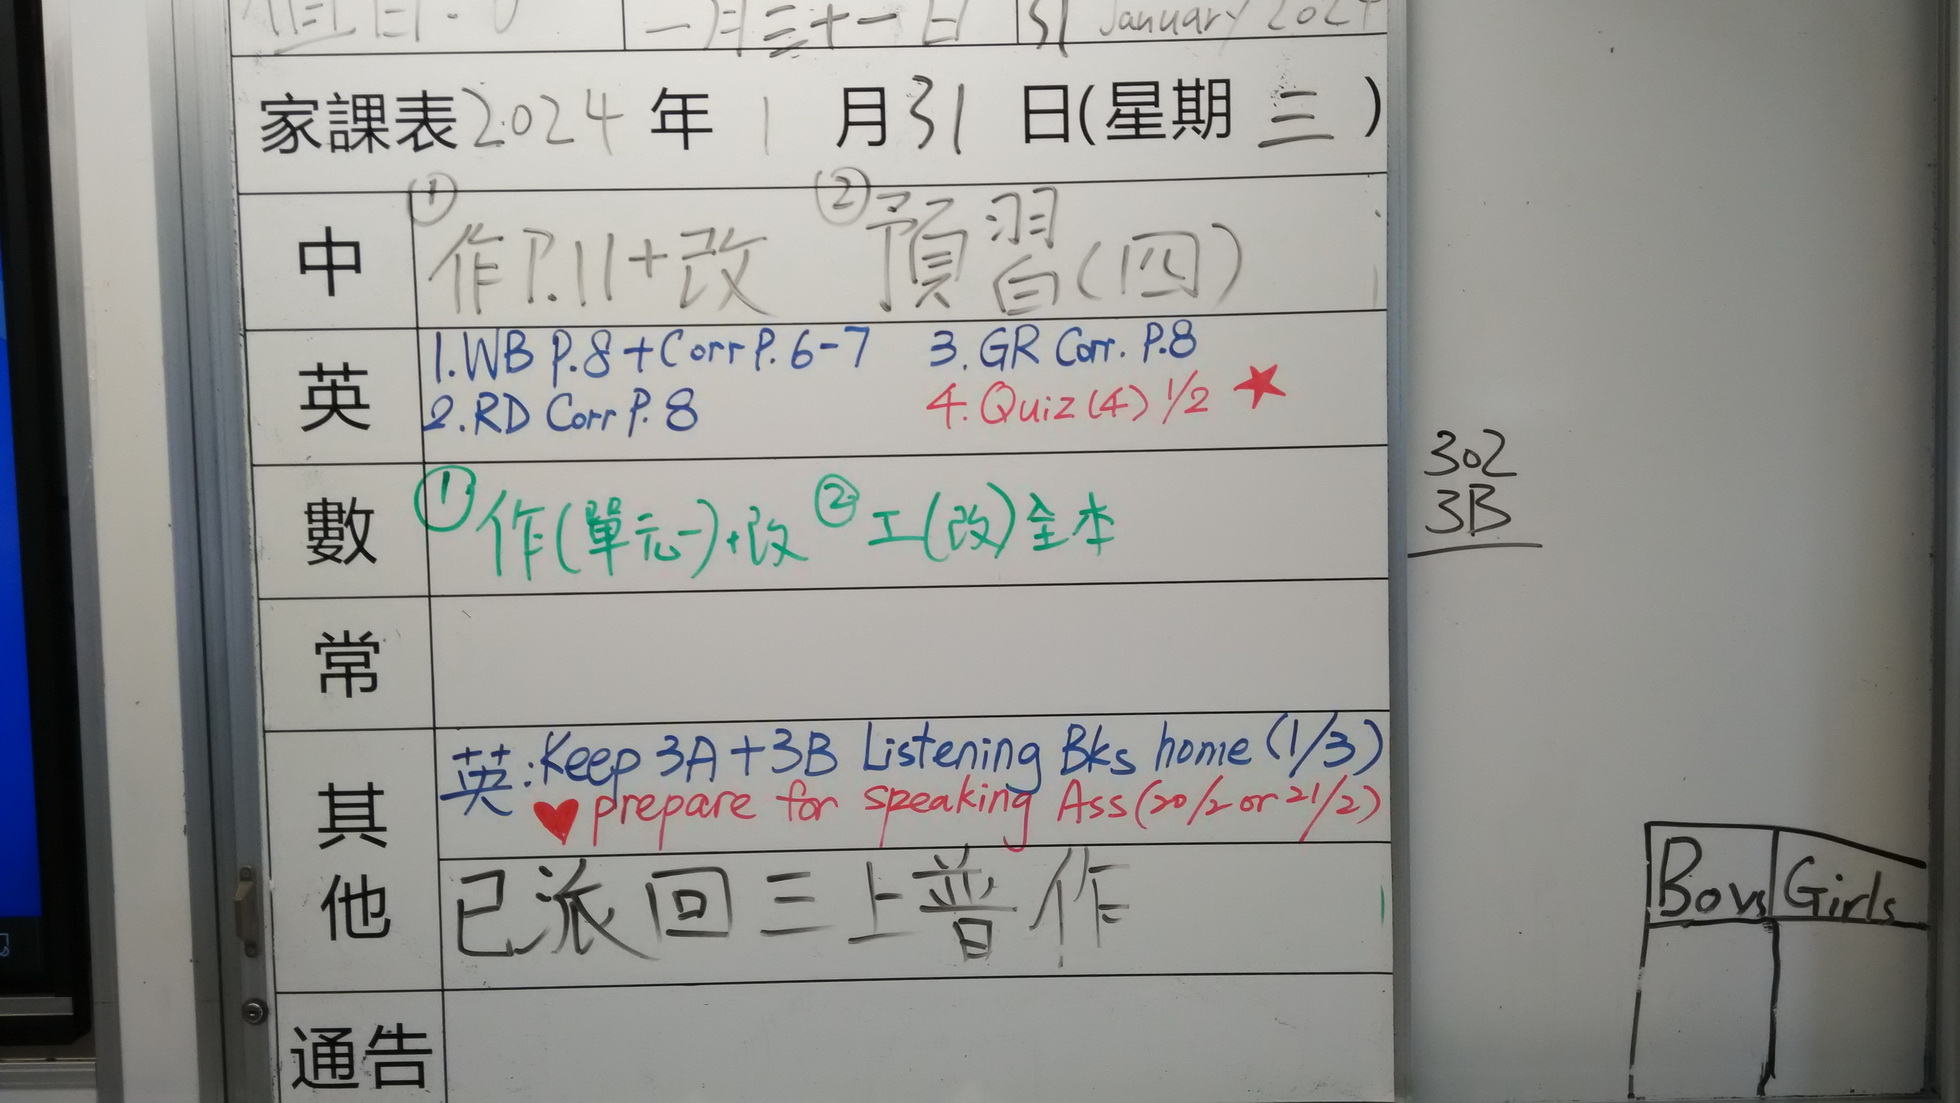 值日:
一月三十一日 31 January 2024
家課表2024年1月31日(星期三)
中
① 作P.11+改 ② 預習(四)
英
1.WB P.8+Corr P.6-7 3. GR Corr. P.8
2.RD Corr P.8 4. Quiz(4) 1/2 ★
數
① 作(單元一)+改 ② 工(改)全本
常
其他
英:Keep 3A+3B Listening Bks home (1/3)
♥ prepare for speaking Ass(20/2 or 21/2)
已派回三上普作
通告
302
3B
Boys Girls